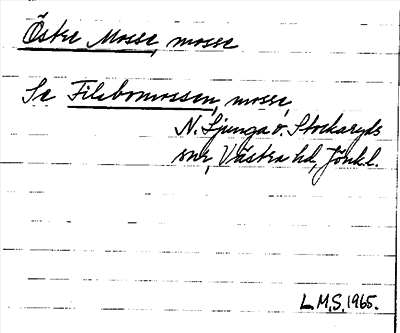 Öster Mosse, mosse
Se Filebomossen, mosse,
N. Ljunga o. Stockaryds
snr, Västra hd, Jönk.l.
L.M.S. 1965.